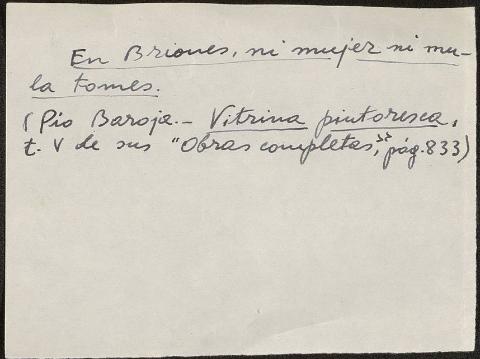 En Briones, ni mujer ni mu-
la tomes.
(Pío Baroja.- Vitrina pintoresca,
t. V de sus "Obras completas", pág. 833)